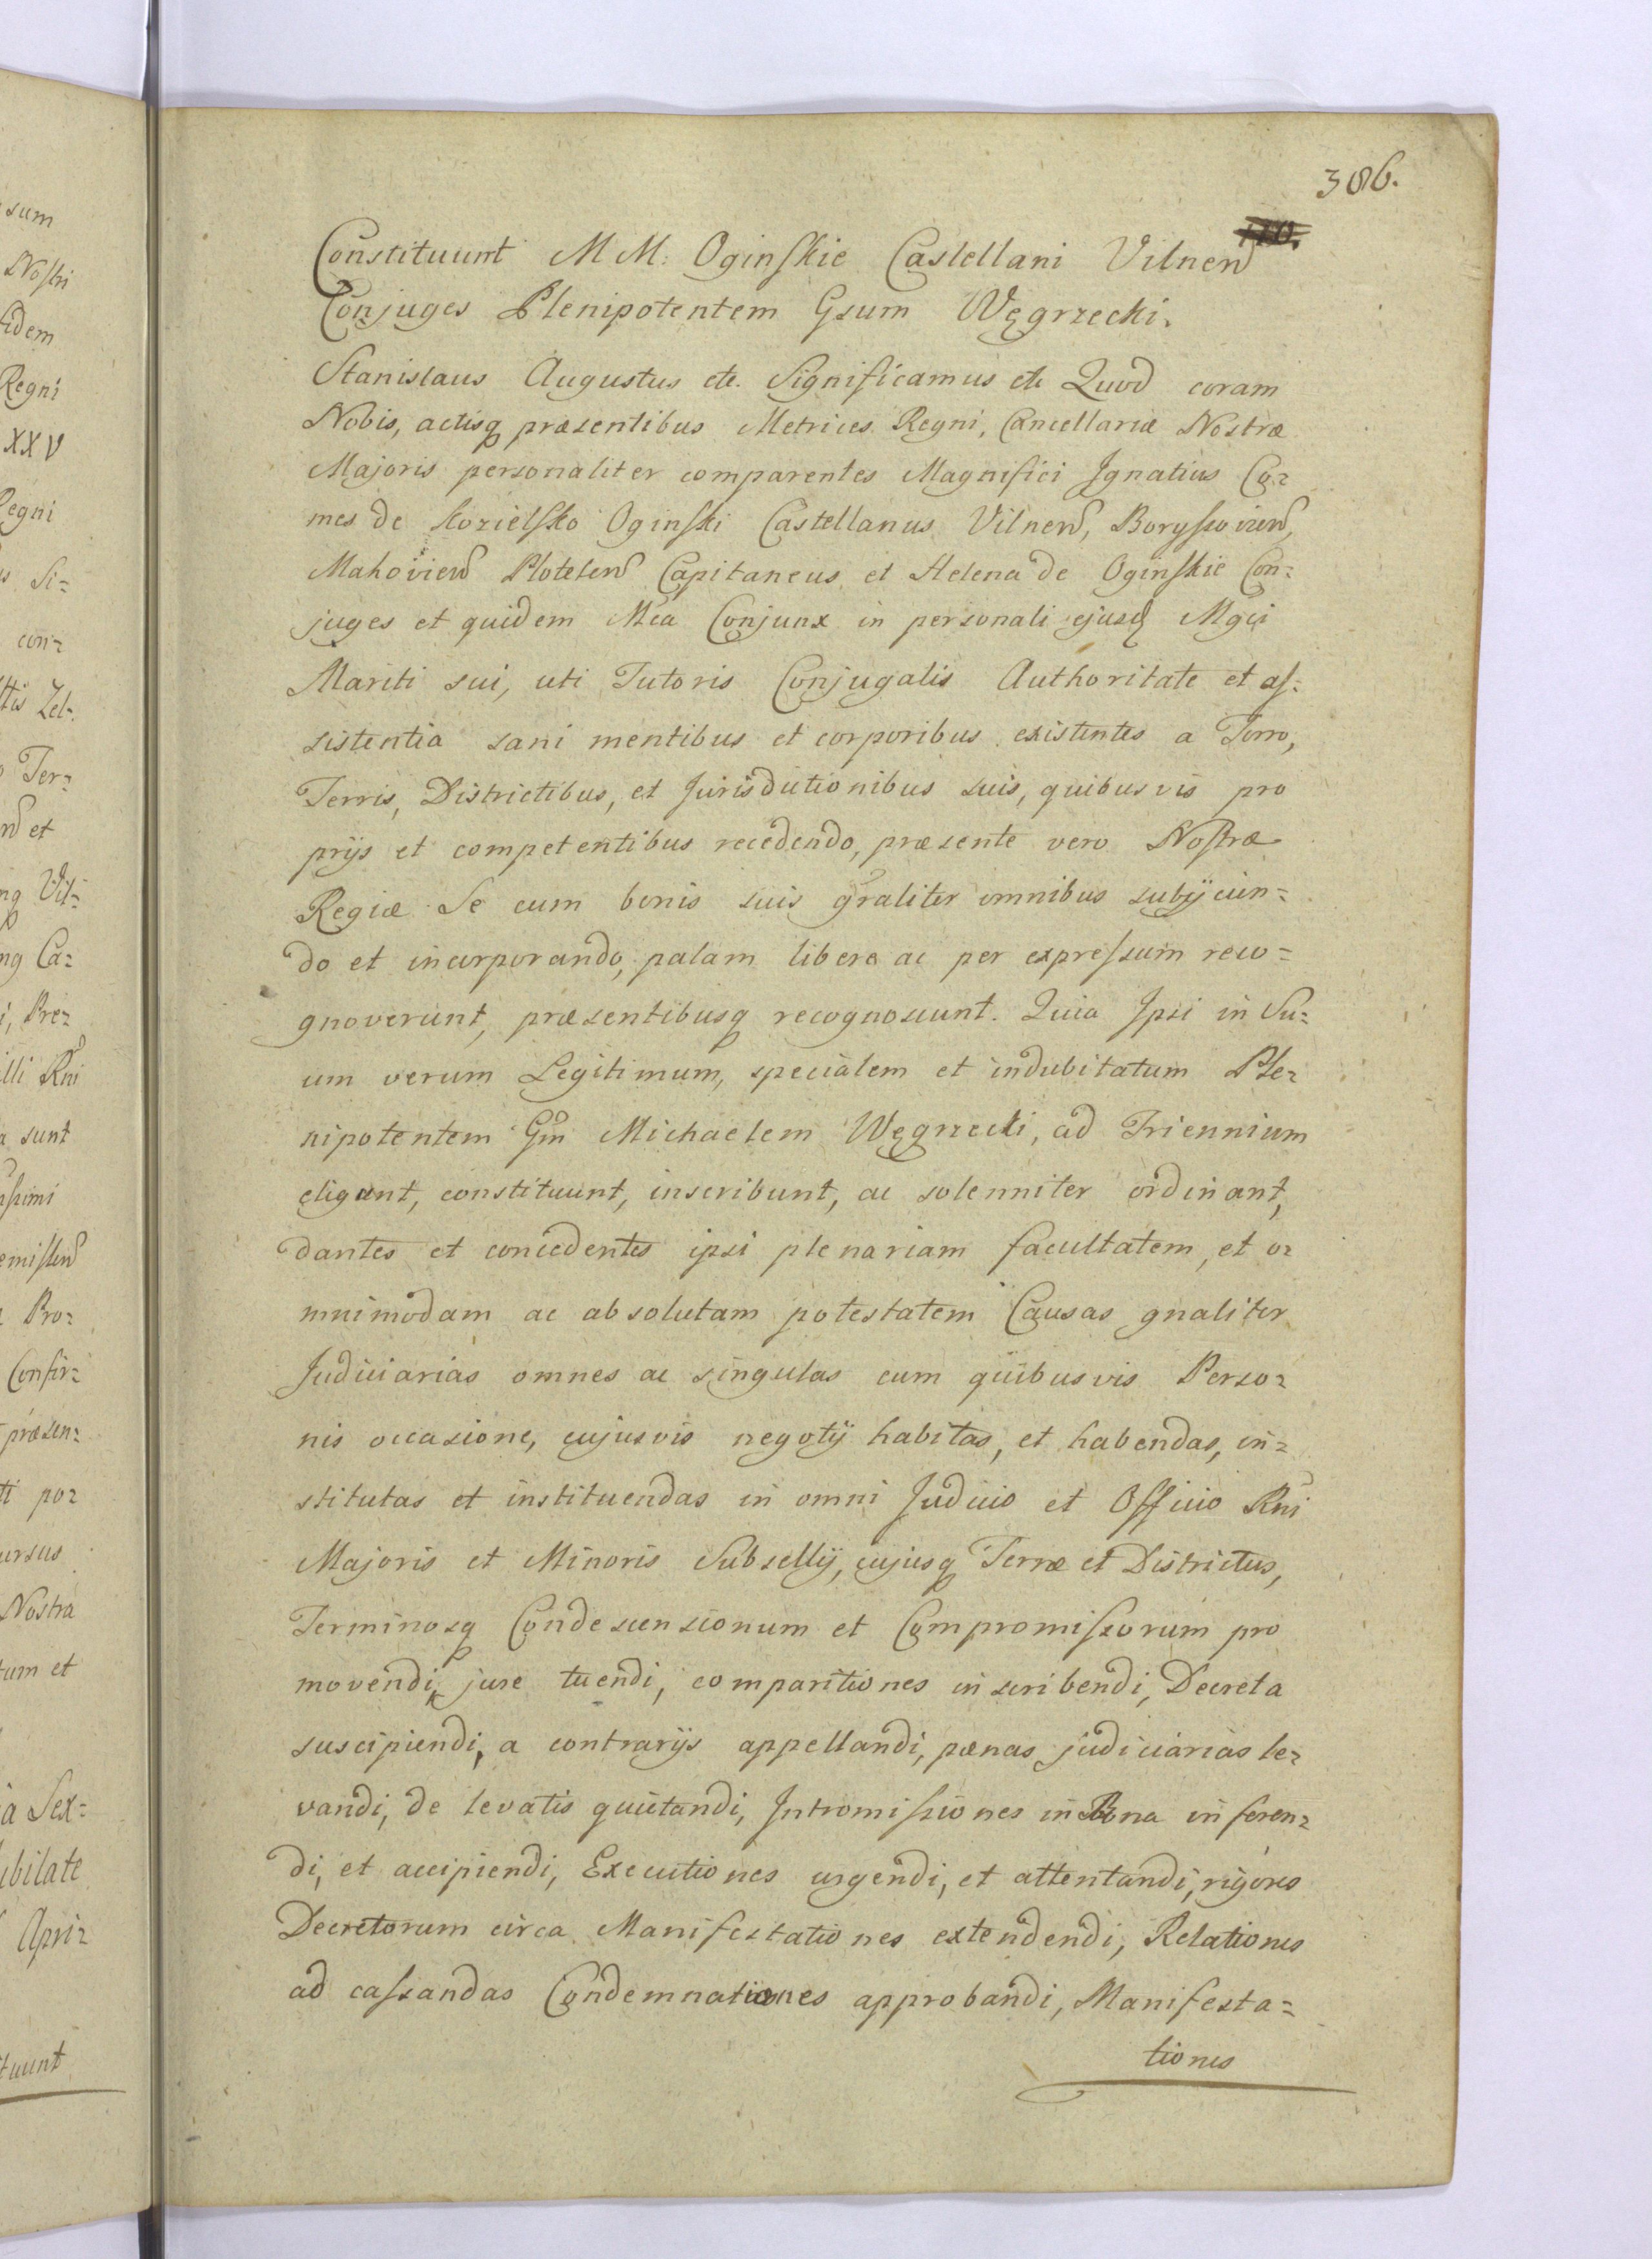 386.
Constituunt MM: Oginskie Castellani Vilnen
Conjuges Plenipotentem Gsum Węgrzecki.
Stanislaus Augustus etc. Significamus etc Quod coram
Nobis, actisq præsentibus Metrices Regni, Cancellariæ Nostræ
Majoris personaliter comparentes Magnifici Ignatius Co=
mes de Kozielsko Oginski Castellanus Vilnen, Boryssovien,
Mahovien Plotelen Capitaneus et Helena de Oginskie Con=
juges et quidem Mca Conjunx in personali ejusd Mgci
Mariti sui, uti Tutoris Conjugalis Authoritate et as=
sistentia sani mentibus et corporibus existentes a Foro,
Terris, Districtibus, et Jurisdictionibus suis, quibusvis pro
prijs et competentibus recedendo, præsente vero Nostræ
Regiæ Se cum bonis suis gnraliter omnibus subijcien=
do et incorporando, palam libere ac per expressum reco=
gnoverunt, præsentibusq recognoscunt. Quia Ipsi in Su=
um verum Legitimum, specialem et indubitatum Ple=
nipotentem Gm Michaelem Węgrzecki, ad Triennium
eligunt, constituunt, inscribunt, ac solenniter ordinant,
dantes et concedentes ipsi plenariam facultatem, et o=
mnimodam ac absolutam potestatem Causas gnaliter
Judiciarias omnes ac singulas cum quibusvis Perso=
nis occasione, cujusvis negotij habitas, et habendas, in=
stitutas et instituendas in omni Judicio et Officio Rni
Majoris et Minoris Subsellij, cujusq Terræ et Districtus,
Terminosq Condescensionum et Compromissorum pro
movendi, jure tuendi, comparitiones inscribendi, Decreta
suscipiendi, a contrarijs appellandi, pœnas judiciarias le=
vandi, de levatis quietandi, Intromissiones in Bona inferen=
di, et accipiendi, Executiones urgendi, et attentandi, rigores
Decretorum circa Manifestationes extendendi, Relationes
ad cassandas Condemnationes approbandi, Manifesta=
tiones
sum
Nostri
Regni
XXV
Regni
Si=
con=
Ter=
et
Vil=
Ca=
Pre=
Rni
sunt
Pro=
Confir=
præsen=
po=
Nostra
et
Sex=
Apri=